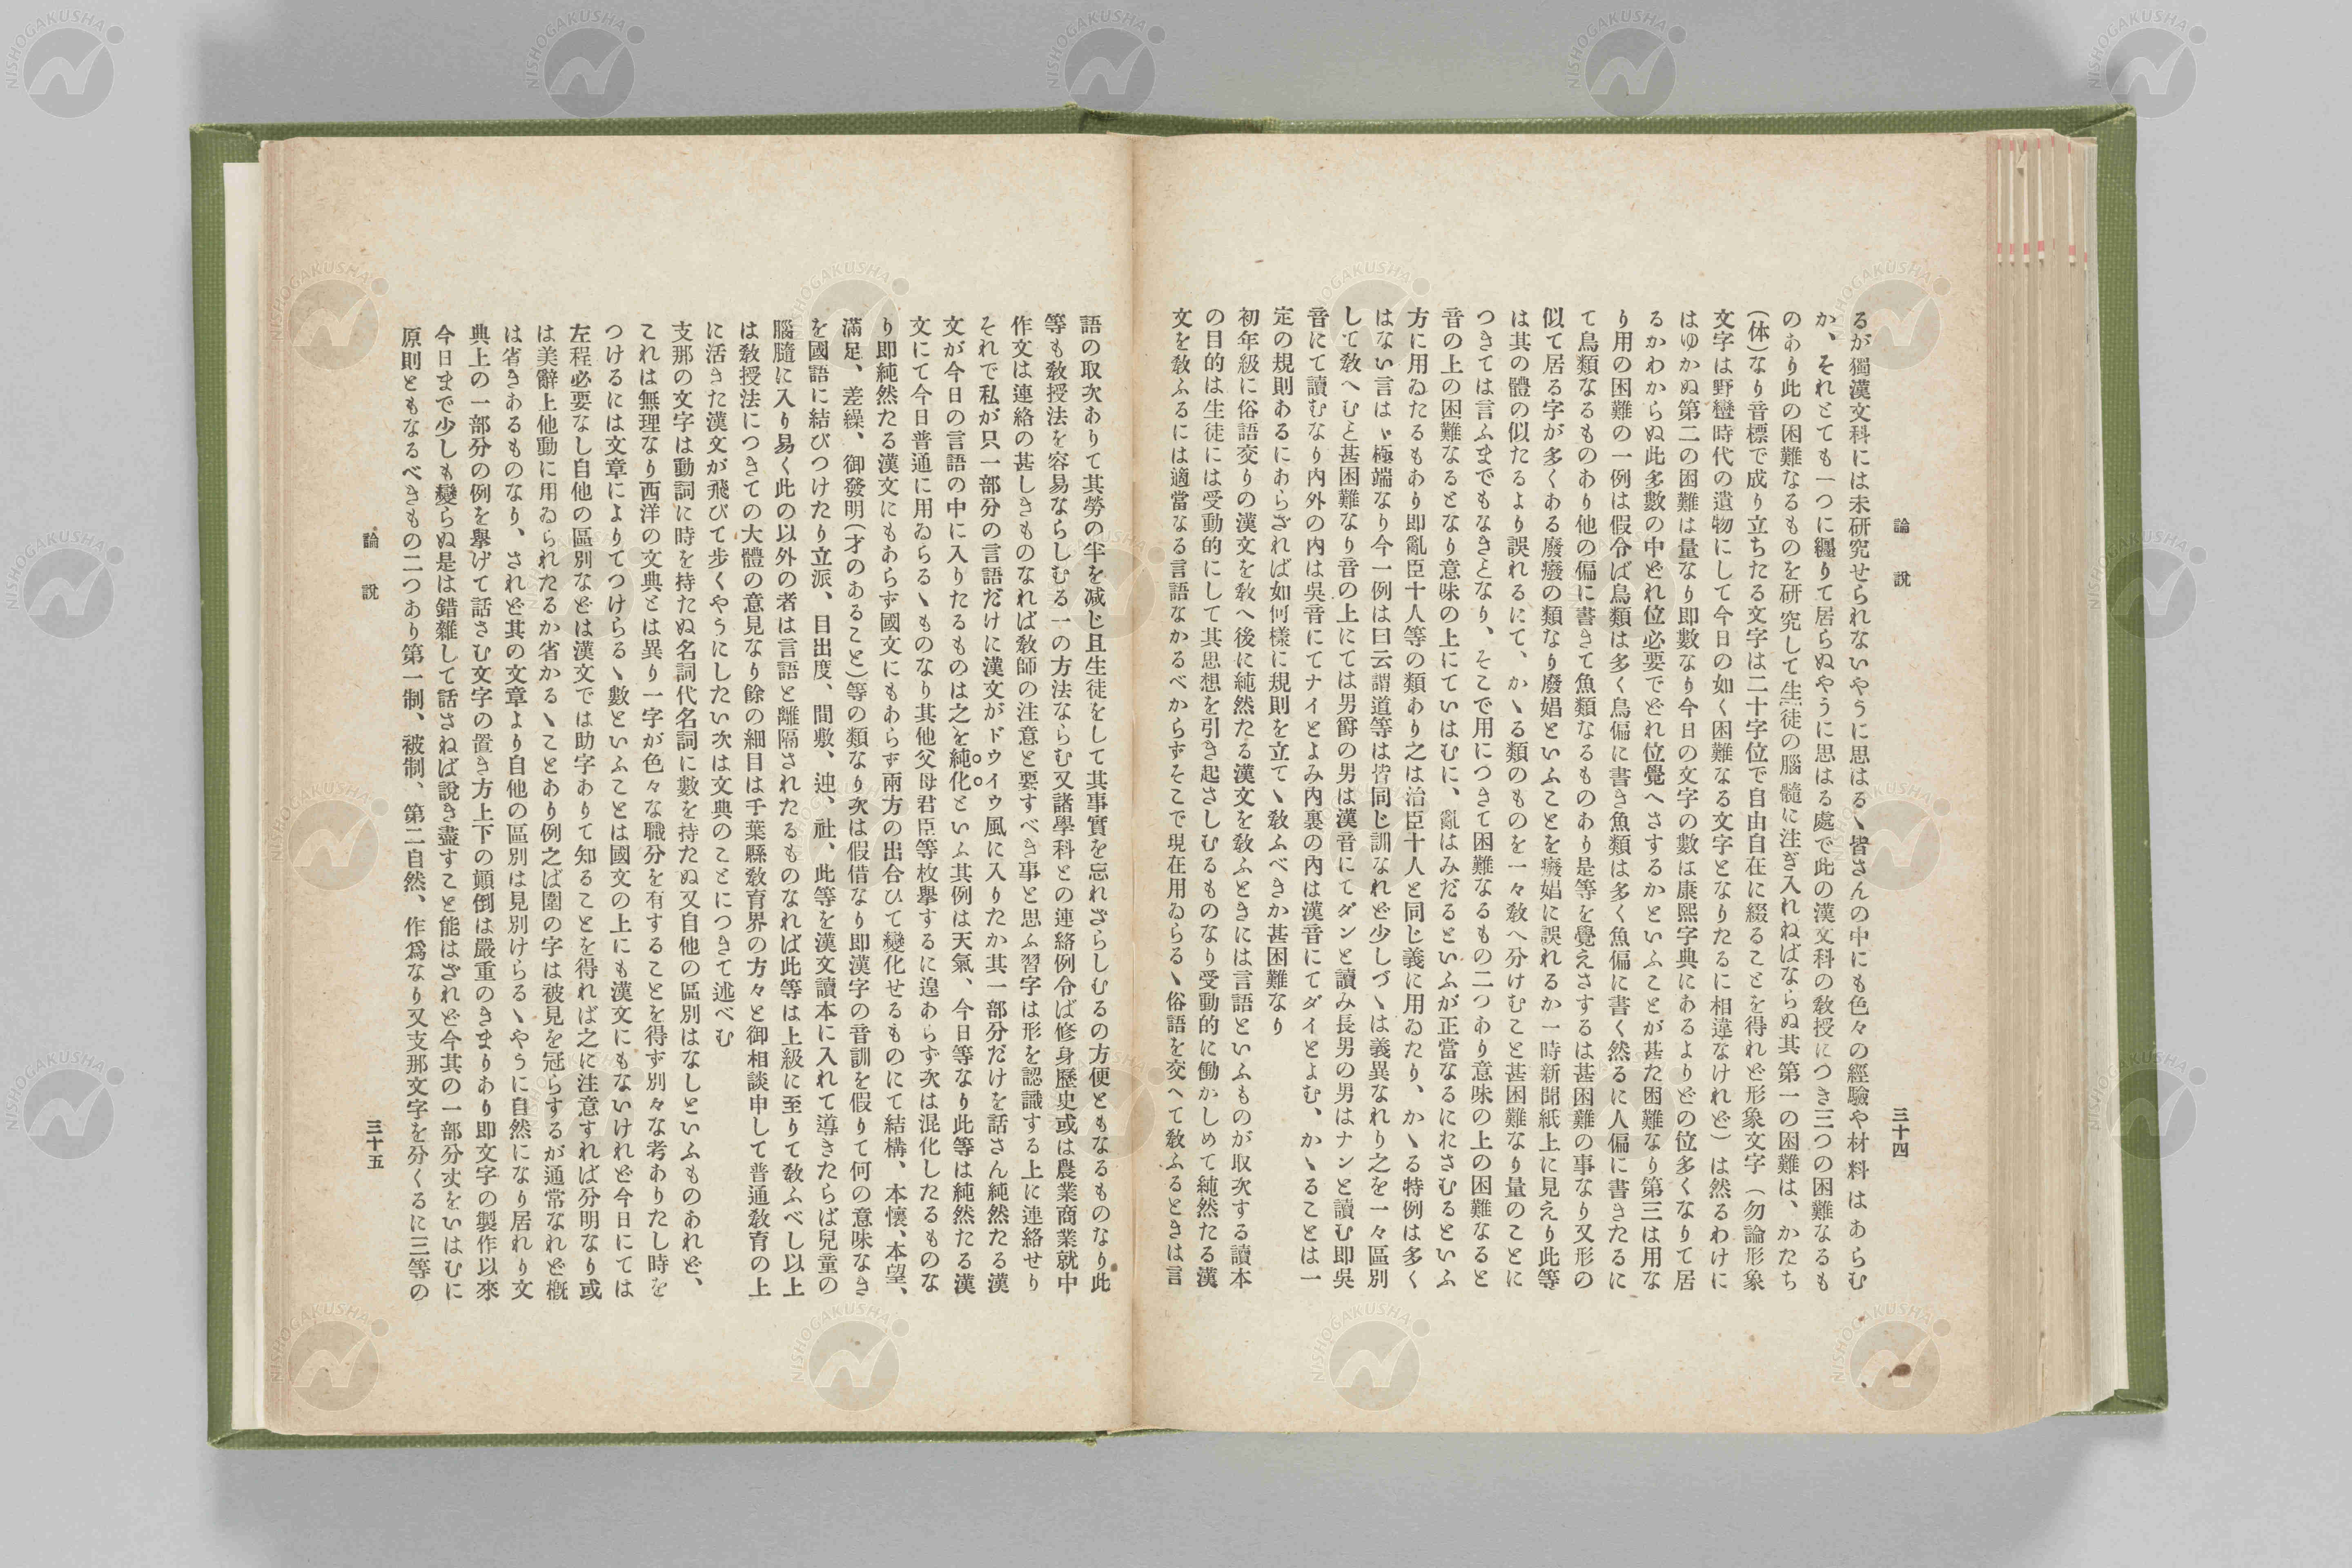 論説
三十四
るが獨漢文科には未研究せられないやうに思はるゝ皆さんの中にも色々の經驗や材料はあらむ
か、それとても一つに纒りて居らぬやうに思はる處で此の漢文科の敎授につき三つの困難なるも
のあり此の困難なるものを研究して生徒の腦髓に注ぎ入れねばならぬ其第一の困難は、かたち
(体)なり音標で成り立ちたる文字は二十字位で自由自在に綴ることを得れど形象文字(勿論形象
文字は野蠻時代の遺物にして今日の如く困難なる文字となりたるに相違なけれど)は然るわけに
はゆかぬ第二の困難は量なり即數なり今日の文字の數は康熙字典にあるよりどの位多くなりて居
るかわからぬ此多數の中どれ位必要でどれ位覺へさするかといふことが甚た困難なり第三は用な
り用の困難の一例は假令ば鳥類は多く鳥偏に書き魚類は多く魚偏に書く然るに人偏に書きたるに
て鳥類なるものあり他の偏に書きて魚類なるものあり是等を覺えさするは甚困難の事なり又形の
似て居る字が多くある廢癈の類なり廢娼といふことを癈娼に誤れるか一時新聞紙上に見えり此等
は其の體の似たるより誤れるにて、かゝる類のものを一々敎へ分けむこと甚困難なり量のことに
つきては言ふまでもなきとなり、そこで用につきて困難なるもの二つあり意味の上の困難なると
音の上の困難なるとなり意味の上にていはむに、亂はみだるといふが正當なるにれさむるといふ
方に用ゐたるもあり即亂臣十人等の類あり之は治臣十人と同じ義に用ゐたり、かゝる特例は多く
はない言はゞ極端なり今一例は曰云謂道等は皆同じ訓なれど少しづゝは義異なれり之を一々區別
して敎へむと甚困難なり音の上にては男爵の男は漢音にてダンと讀み長男の男はナンと讀む即吳
音にて讀むなり内外の内は吳音にてナイとよみ内裏の内は漢音にてダイとよむ、かゝることは一
定の規則あるにあらざれば如何樣に規則を立てゝ敎ふべきか甚困難なり
初年級に俗語交りの漢文を敎へ後に純然たる漢文を敎ふときには言語といふものが取次する讀本
の目的は生徒には受動的にして其思想を引き起さしむるものなり受動的に働かしめて純然たる漢
文を敎ふるには適當なる言語なかるべからすそこで現在用ゐらるゝ俗語を交へて敎ふるときは言
語の取次ありて其勞の半を减じ且生徒をして其事實を忘れざらしむるの方便ともなるものなり此
等も敎授法を容易ならしむる一の方法ならむ又諸學科との連絡例令ば修身歷史或は農業商業就中
作文は連絡の甚しきものなれば敎師の注意と要すべき事と思ふ習字は形を認識する上に連絡せり
それで私が只一部分の言語だけに漢文がドウイウ風に入りたか其一部分だけを話さん純然たる漢
文が今日の言語の中に入りたるものは之を純化といふ其例は天氣、今日等なり此等は純然たる漢
文にて今日普通に用ゐらるゝものなり其他父母君臣等枚擧するに遑あらず次は混化したるものな
り即純然たる漢文にもあらず國文にもあらず兩方の出合ひて變化せるものにて結構、本懷、本望、
滿足、差繰、御發明(才のあること)等の類なり次は假借なり即漢字の音訓を假りて何の意味なき
を國語に結びつけたり立派、目出度、間敷、迚、社、此等を漢文讀本に入れて導きたらば兒童の
腦髓に入り易く此の以外の者は言語と離隔されたるものなれば此等は上級に至りて敎ふべし以上
は敎授法につきての大體の意見なり餘の細目は千葉縣敎育界の方々と御相談申して普通敎育の上
に活きた漢文が飛びて步くやうにしたい次は文典のことにつきて述べむ
支那の文字は動詞に時を持たぬ名詞代名詞に數を持たぬ又自他の區別はなしといふものあれど、
これは無理なり西洋の文典とは異り一字が色々な職分を有することを得ず別々な考ありたし時を
つけるには文章によりてつけらるゝ數といふことは國文の上にも漢文にもないけれど今日にては
左程必要なし自他の區別などは漢文では助字ありて知ることを得れば之に注意すれば分明なり或
は美辭上他動に用ゐられたるか省かるゝことあり例之ば圍の字は被見を冠らするが通常なれど槪
は省きあるものなり、されど其の文章より自他の區別は見別けらるゝやうに自然になり居れり文
典上の一部分の例を擧げて話さむ文字の置き方上下の顚倒は嚴重のきまりあり即文字の製作以來
今日まで少しも變らぬ是は錯雜して話さねば說き盡すこと能はざれど今其の一部分丈をいはむに
原則ともなるべきもの二つあり第一制、被制、第二自然、作爲なり又支那文字を分くるに三等の
論説
三十五